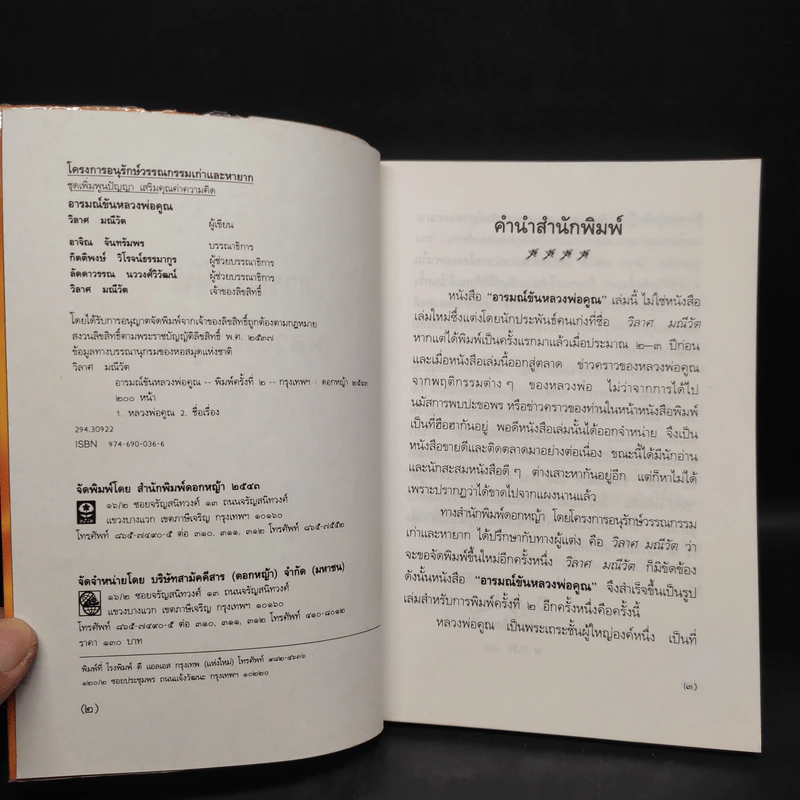 โครงการอนุรักษ์วรรณกรรมเก่าและหายาก
ชุดเพิ่มพูนปัญญา เสริมคุณค่าความคิด
อารมณ์ขันหลวงพ่อคูณ
วิลาศ มณีวัต ผู้เขียน
อาจิณ จันทรัมพร บรรณาธิการ
กิตติพงษ์ วิโรจน์ธรรมากูร ผู้ช่วยบรรณาธิการ
ลัดดาวรรณ นววงศ์วิวัฒน์ ผู้ช่วยบรรณาธิการ
วิลาศ มณีวัต เจ้าของลิขสิทธิ์
โดยได้รับการอนุญาตจัดพิมพ์จากเจ้าของลิขสิทธิ์ถูกต้องตามกฎหมาย
สงวนลิขสิทธิ์ตามพระราชบัญญัติลิขสิทธิ์ พ.ศ. ๒๕๓๗
ข้อมูลทางบรรณานุกรมของหอสมุดแห่งชาติ
วิลาศ มณีวัต
อารมณ์ขันหลวงพ่อคูณ -- พิมพ์ครั้งที่ ๒ -- กรุงเทพฯ : ดอกหญ้า ๒๕๔๓
๒๐๐ หน้า
1. หลวงพ่อคูณ 2. ชื่อเรื่อง
294.30922
ISBN 974-690-036-6
จัดพิมพ์โดย สำนักพิมพ์ดอกหญ้า ๒๕๔๓
๑๖/๒ ซอยจรัญสนิทวงศ์ ๑๓ ถนนจรัญสนิทวงศ์
แขวงบางแวก เขตภาษีเจริญ กรุงเทพฯ ๑๐๑๖๐
โทรศัพท์ ๘๖๕-๗๔๙๐-๕ ต่อ ๓๑๐, ๓๑๑, ๓๑๒ โทรศัพท์ ๘๖๕-๗๕๕๒
จัดจำหน่ายโดย บริษัทสามัคคีสาร (ดอกหญ้า) จำกัด (มหาชน)
๑๖/๒ ซอยจรัญสนิทวงศ์ ๑๓ ถนนจรัญสนิทวงศ์
แขวงบางแวก เขตภาษีเจริญ กรุงเทพฯ ๑๐๑๖๐
โทรศัพท์ ๘๖๕-๗๔๙๐-๕ ต่อ ๓๑๐, ๓๑๑, ๓๑๒ โทรศัพท์ ๔๑๐-๘๐๑๒
ราคา ๑๓๐ บาท
พิมพ์ที่ โรงพิมพ์ ดี แอลเอส กรุงเทพ (แห่งใหม่) โทรศัพท์ ๙๘๒-๔๖๓๖
๑๒๐/๒ ซอยประชุมพร ถนนแจ้งวัฒนะ กรุงเทพฯ ๑๐๒๒๐
(๒)
คำนำสำนักพิมพ์
หนังสือ "อารมณ์ขันหลวงพ่อคูณ" เล่มนี้ ไม่ใช่หนังสือ
เล่มใหม่ซึ่งแต่งโดยนักประพันธ์คนเก่งที่ชื่อ วิลาศ มณีวัต
หากแต่ได้พิมพ์เป็นครั้งแรกมาแล้วเมื่อประมาณ ๒-๓ ปีก่อน
และเมื่อหนังสือเล่มนี้ออกสู่ตลาด ข่าวคราวของหลวงพ่อคูณ
จากพฤติกรรมต่าง ๆ ของหลวงพ่อ ไม่ว่าจากการได้ไป
นมัสการพบปะขอพร หรือข่าวคราวของท่านในหน้าหนังสือพิมพ์
เป็นที่ฮือฮากันอยู่ พอดีหนังสือเล่มนั้นได้ออกจำหน่าย จึงเป็น
หนังสือขายดีและติดตลาดมาอย่างต่อเนื่อง ขณะนี้ได้มีนักอ่าน
และนักสะสมหนังสือดี ๆ ต่างเสาะหากันอยู่อีก แต่ก็หาไม่ได้
เพราะปรากฏว่าได้ขาดไปจากแผงนานแล้ว
ทางสำนักพิมพ์ดอกหญ้า โดยโครงการอนุรักษ์วรรณกรรม
เก่าและหายาก ได้ปรึกษากับทางผู้แต่ง คือ วิลาศ มณีวัต ว่า
จะขอจัดพิมพ์ขึ้นใหม่อีกครั้งหนึ่ง วิลาศ มณีวัต ก็มิขัดข้อง
ดังนั้นหนังสือ "อารมณ์ขันหลวงพ่อคูณ" จึงสำเร็จขึ้นเป็นรูป
เล่มสำหรับการพิมพ์ครั้งที่ ๒ อีกครั้งหนึ่งคือครั้งนี้
หลวงพ่อคูณ เป็นพระเถระชั้นผู้ใหญ่องค์หนึ่ง เป็นที่
(๓)